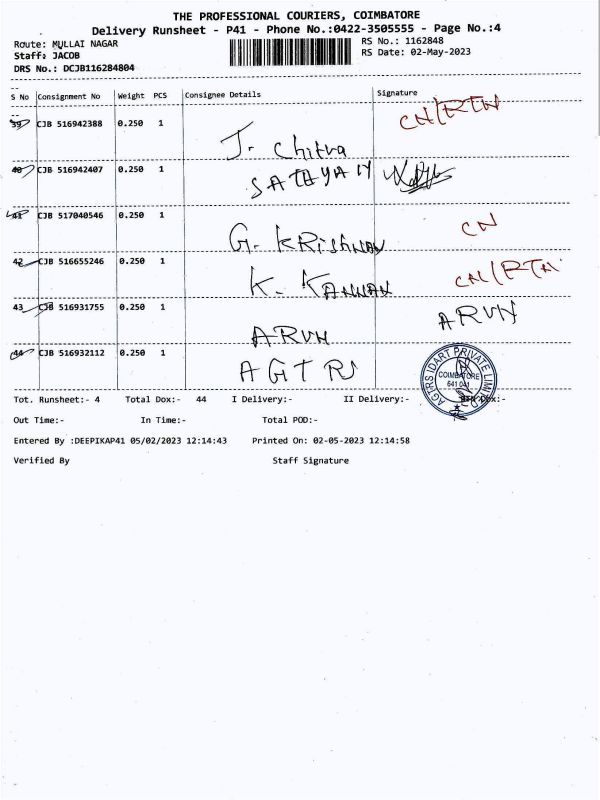 THE PROFESSIONAL COURIERS, COIMBATORE
Delivery Runsheet - P41 - Phone No.:0422-3505555 - Page No.:4
Route: MULLAI NAGAR RS No.: 1162848
Staff: JACOB RS Date: 02-May-2023
DRS No.: DCJB116284804
S No Consignment No Weight PCS Consignee Details Signature
39 CJB 516942388 0.250 1 J. Chitra CN/RTN
40 CJB 516942407 0.250 1 SATHYAN
41 CJB 517040546 0.250 1 G. KRISHNAN CN
42 CJB 516655246 0.250 1 K. KANNAN CN/RTN
43 CJB 516931755 0.250 1 ARUN ARUN
44 CJB 516932112 0.250 1 AGTRS
AGTRS IDART PRIVATE LIMITED
COIMBATORE
641 041
Tot. Runsheet:- 4 Total Dox:- 44 I Delivery:- II Delivery:-
Out Time:- In Time:- Total POD:-
Entered By :DEEPIKAP41 05/02/2023 12:14:43 Printed On: 02-05-2023 12:14:58
Verified By Staff Signature